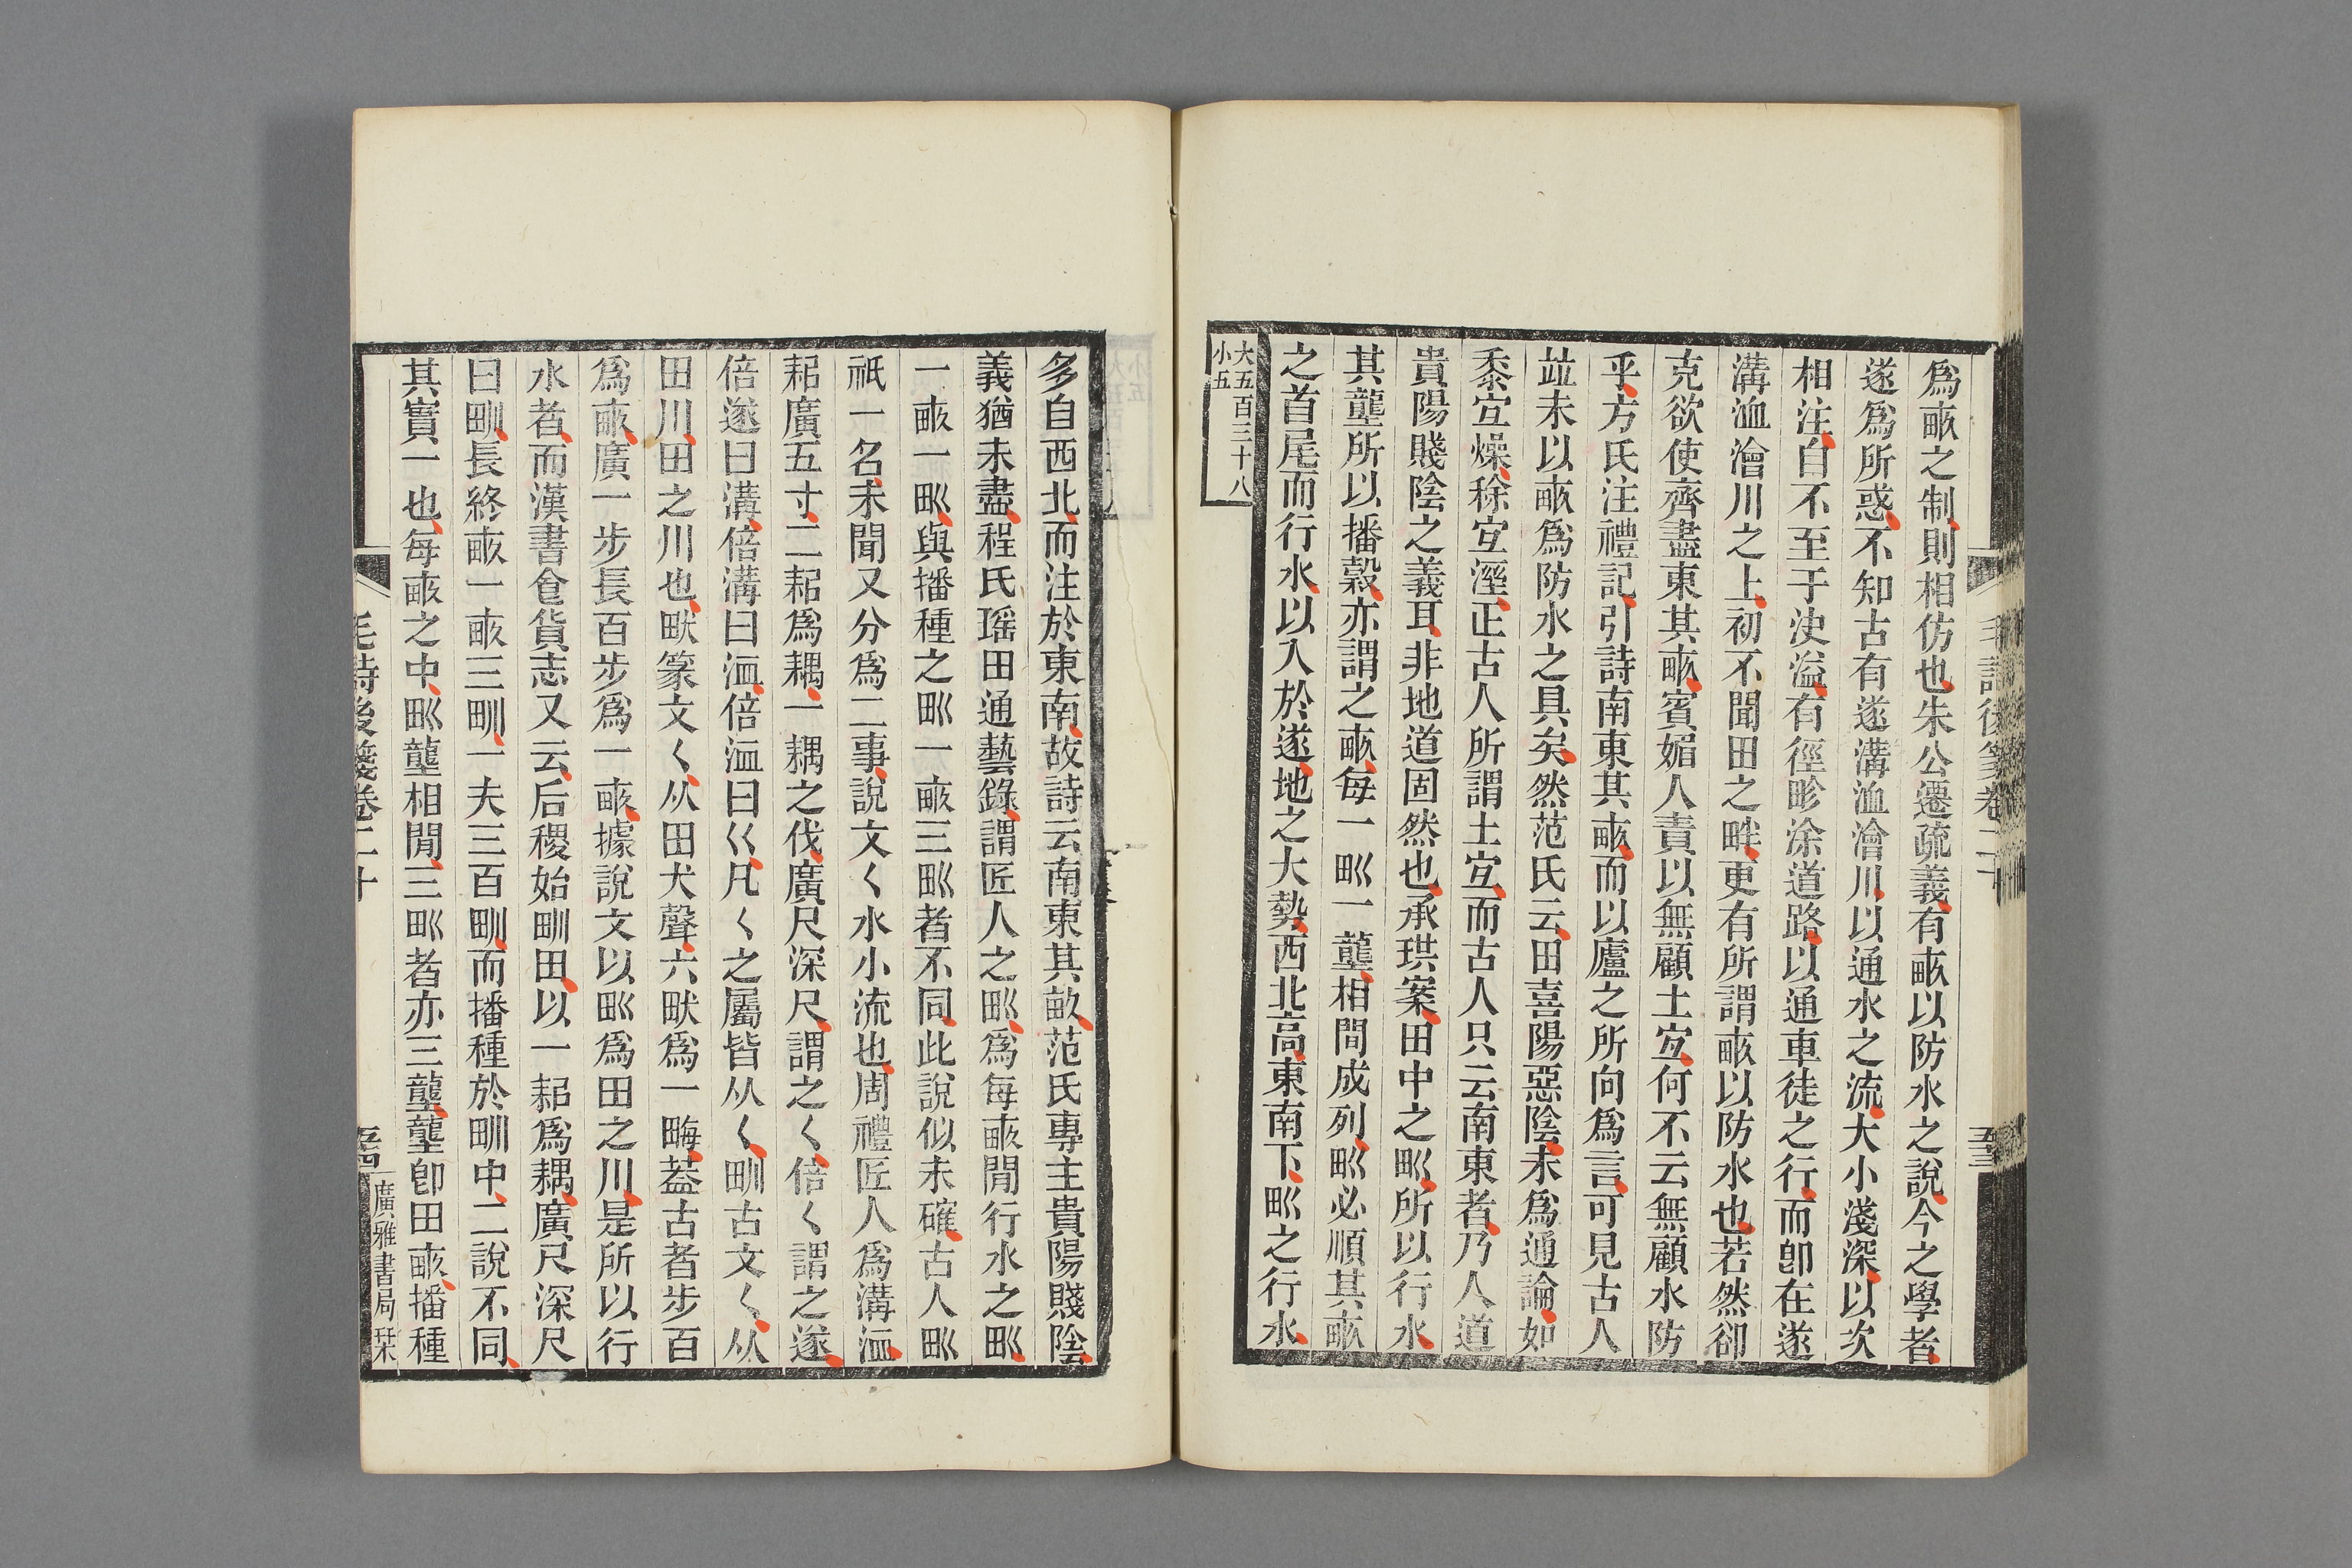 爲畞之制則相仿也朱公遷疏義有畞以防水之說今之學者
遂爲所惑不知古有遂溝洫澮川以通水之流大小淺深以次
相注自不至于泆溢有徑畛涂道路以通車徒之行而卽在遂
溝洫澮川之上初不聞田之畔更有所謂畞以防水也若然卻
克欲使齊盡東其畞賓媚人責以無顧土宜何不云無顧水防
乎方氏注禮記引詩南東其畞而以廬之所向爲言可見古人
竝未以畞爲防水之具矣然范氏云田喜陽惡陰未爲通論如
黍宜燥稌宜溼正古人所謂土宜而古人只云南東者乃人道
貴陽賤陰之義耳非地道固然也承珙案田中之甽所以行水
其壟所以播穀亦謂之畞每一甽一壟相間成列甽必順其畞
之首尾而行水以入於遂地之大勢西北高東南下甽之行水
大五百三十八
小五
毛詩後箋卷二十
五三
多自西北而注於東南故詩云南東其畝范氏專主貴陽賤陰
義猶未盡程氏瑤田通藝錄謂匠人之甽爲每畞閒行水之甽
一畞一甽與播種之甽一畞三甽者不同此說似未確古人甽
祇一名未聞又分爲二事說文𡿨水小流也周禮匠人爲溝洫
耜廣五寸二耜爲耦一耦之伐廣尺深尺謂之𡿨倍𡿨謂之遂
倍遂曰溝倍溝曰洫倍洫曰巜凡𡿨之屬皆从𡿨甽古文𡿨从
田川田之川也畎篆文𡿨从田犬聲六畎爲一畮葢古者步百
爲畞廣一步長百步爲一畞據說文以甽爲田之川是所以行
水者而漢書食貨志又云后稷始甽田以一耜爲耦廣尺深尺
曰甽長終畞一畞三甽一夫三百甽而播種於甽中二說不同
其實一也每畞之中甽壟相閒三甽者亦三壟壟卽田畞播種
毛詩後箋卷二十
五四
廣雅書局栞